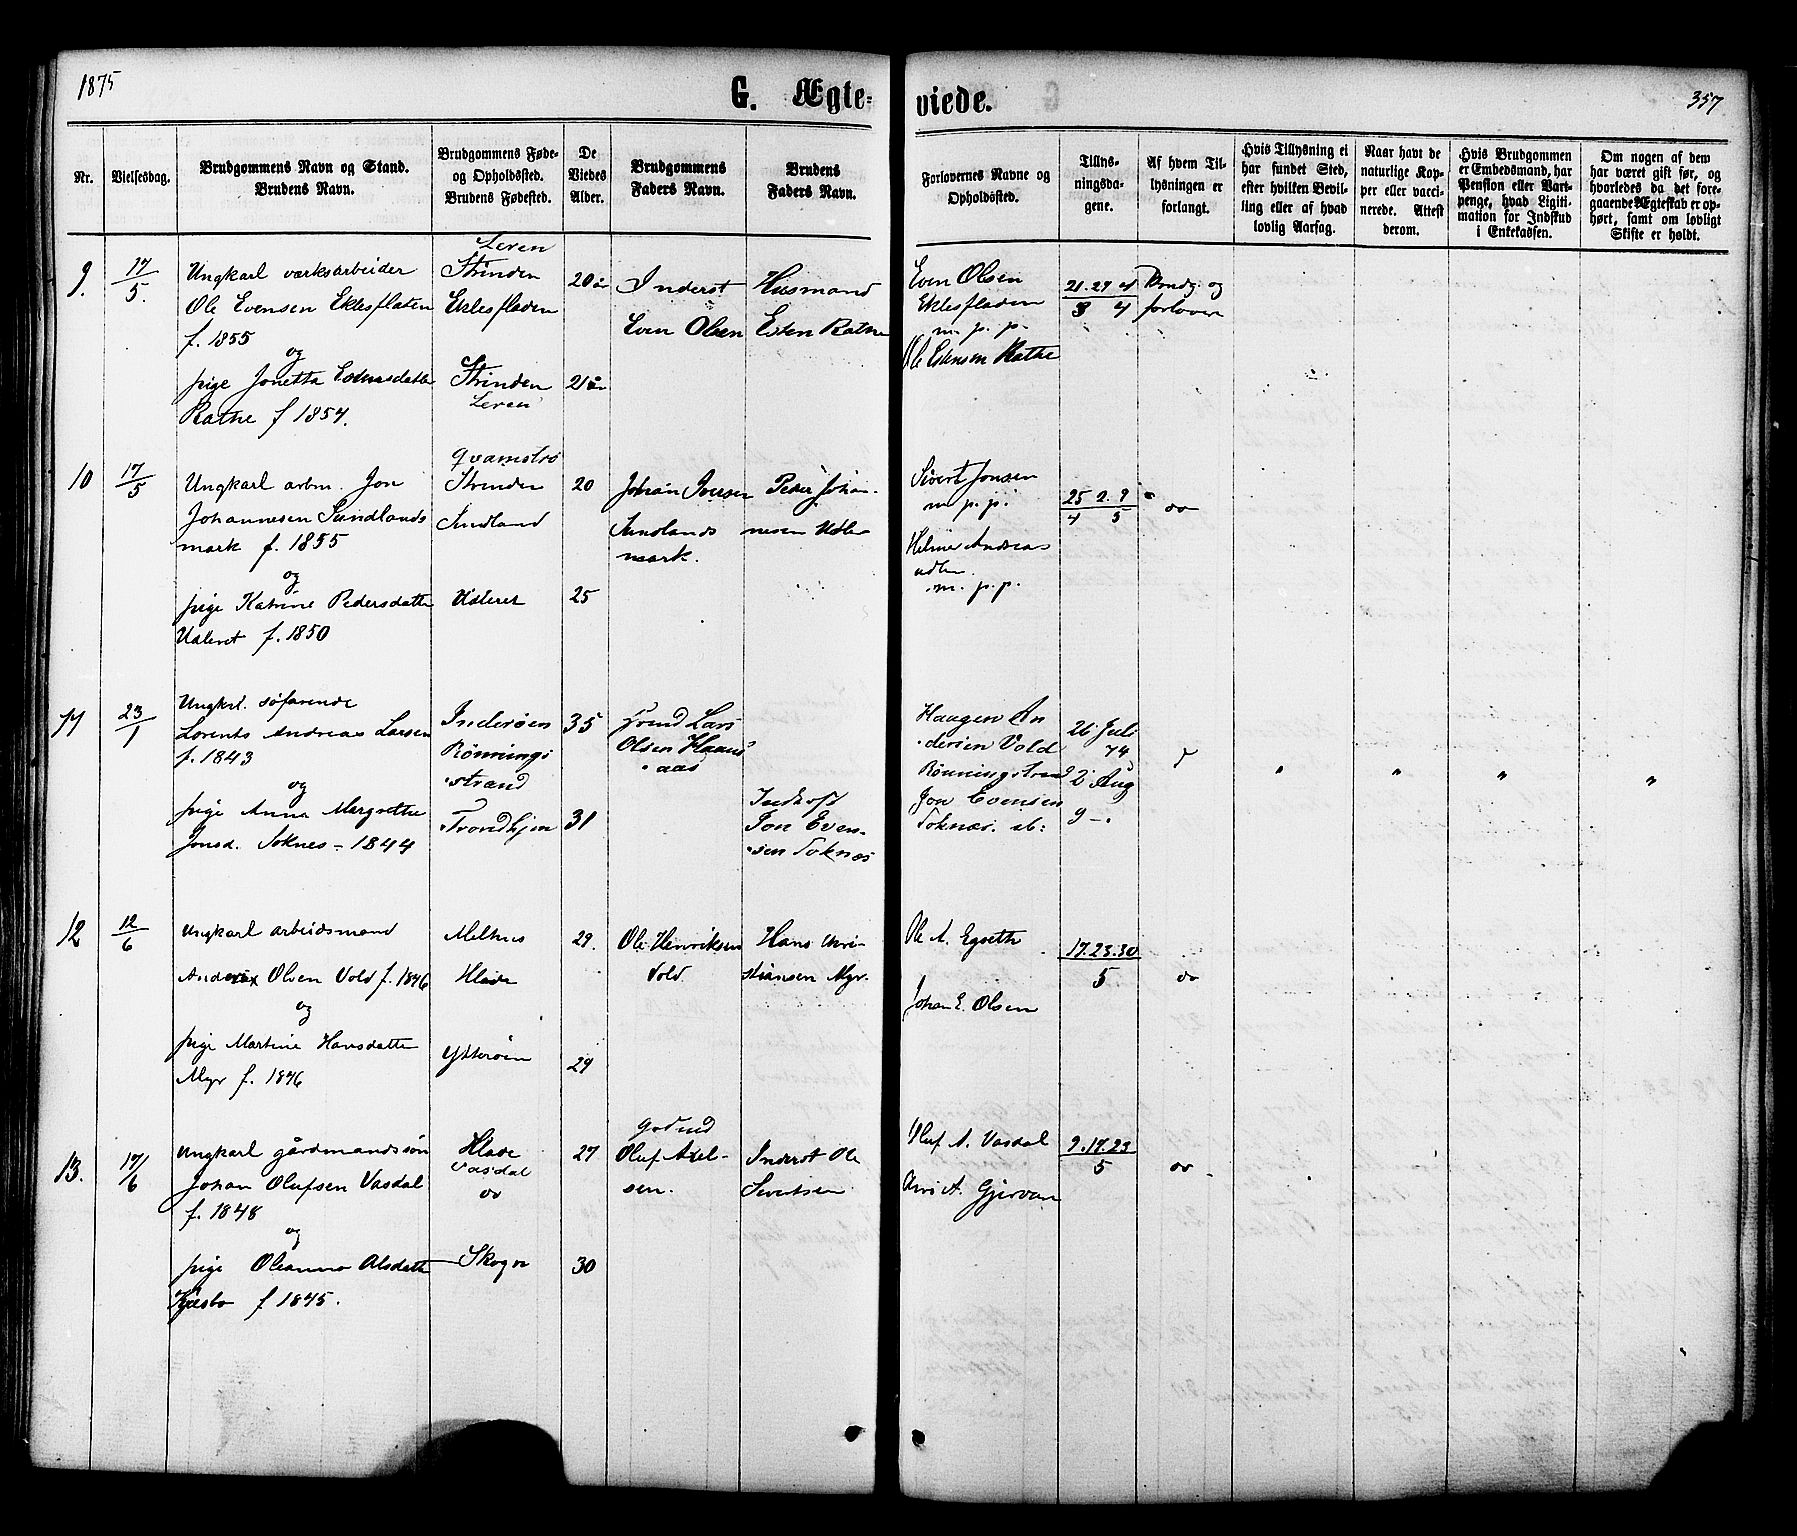 1875
G. Ægte-
viede.
357
Nr.
Vielsesdag.
Brudgommens Navn og Stand.
Brudens Navn.
Brudgommens Føde-
og Opholdssted.
Brudens Fødested.
De
Viedes
Alder.
Brudgommens
Faders Navn.
Brudens
Faders Navn.
Forlovernes Navne og
Opholdssted.
Tillys-
ningsda-
gene.
Af hvem Til-
lysningen er
forlangt.
Hvis Tillysning ei
har fundet Sted,
efter hvilken Bevil-
ling eller af hvad
lovlig Aarsag.
Naar havt de
naturlige Kop-
per eller vacci-
nerede. Attest
derom.
Hvis Brudgommen
er Embedsmand, har
Pension eller Vart-
penge, hvad Ligiti-
mation for Indskud
i Enkekassen.
Om nogen af dem
har været gift før, og
hvorledes da det fore-
gaaende Ægteskab er op-
hørt, samt om lovligt
Skifte er holdt.
9.
17/5.
Ungkarl værksarbeider
Ole Evensen Eklesflaten
f. 1855
og
pige Jonetta Estensdatter
Rathe f 1854.
Leren
Strinden
Eklesfladen
Strinden
Leren
20
21
Inderst
Even Olsen
Husmand
Esten Rathe
Even Olsen
Eklesfladen
m. p. p.
Ole Estensen Rathe
Brudg. og
forlover
10
17/5
Ungkarl arbm. Jon
Johannesen Sundlands
mark f. 1855
og
pige Katrine Pedersdatter
Udleret f. 1850
Strinden
Sundland
Udleret
20
25
Johan Iversen
Sundlands
mark.
Peder Johan-
nesen Udler
Sivert Jonsen
m. p. p.
Helmer Andreas
udler
m. p. p.
25 2. 9
4 5
do
11
23/1
Ungkrl. søfarende
Lorents Andreas Larsen
f. 1843
og
pige Anna Margrethe
Jonsd. Soknes - 1844
Inderøen
Rønnings
strand
Trondhjem
35
31
Lars
Olsen Haans
aas
Jon Even-
sen Soknæs
Haagen An
dersen Vold
Rønningstrand
Jon Evensen
Soknæs.
26 Juli
74
2 Aug
9 -
"
"
"
"
12
12/6
Ungkarl arbeidsmand
Andreas Olsen Vold f. 1846
og
pige Martine Hansdatter
Myr f. 1846
Melhus
Hlade
Ytterøen
29.
29
Ole Henriksen
Vold
Hans Kri-
stiansen Myr.
Ole A. Egseth
Johan E. Olsen
17.23.30
5
do
13.
17/6
Ungkarl gårdmandssøn
Johan Olufsen Vasdal
f. 1848
og
pige Oleanna Olsdatter
f 1845.
Hlade
Vasdal
do
Skogn
27
30
Oluf Axel-
sen.
Inderst Ole
Sivertsen
Oluf A. Vasdal
A. Gjervan
9.17.23
5
do